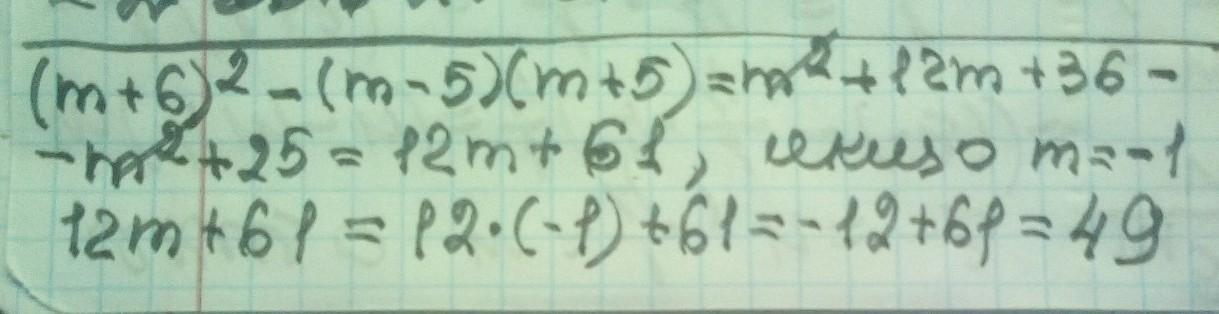 (m+6)² - (m-5)(m+5) = m² + 12m + 36 -
- m² + 25 = 12m + 61, m = -1
12m + 61 = 12·(-1) + 61 = -12 + 61 = 49